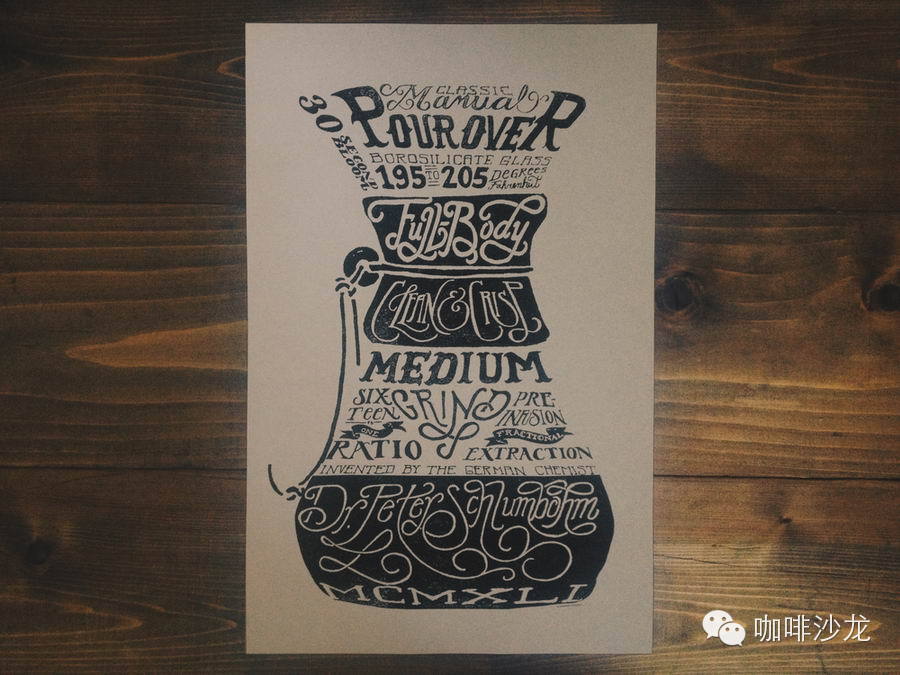 CLASSIC
Manual
POUR OVER
30
SECOND
BLOOM
BOROSILICATE GLASS
195 TO 205 DEGREES
Fahrenheit
Full-Body
CLEAN & CRISP
MEDIUM
GRIND
SIX-
TEEN
ONE
RATIO
PRE-
INFUSION
FRACTIONAL
EXTRACTION
INVENTED BY THE GERMAN CHEMIST
Dr. Peter Schlumbohm
MCMXLI
咖啡沙龙